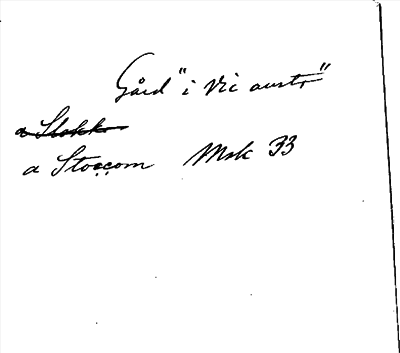 Gård "i Vic austr"
a Stokk
a Stoccom Msk 33